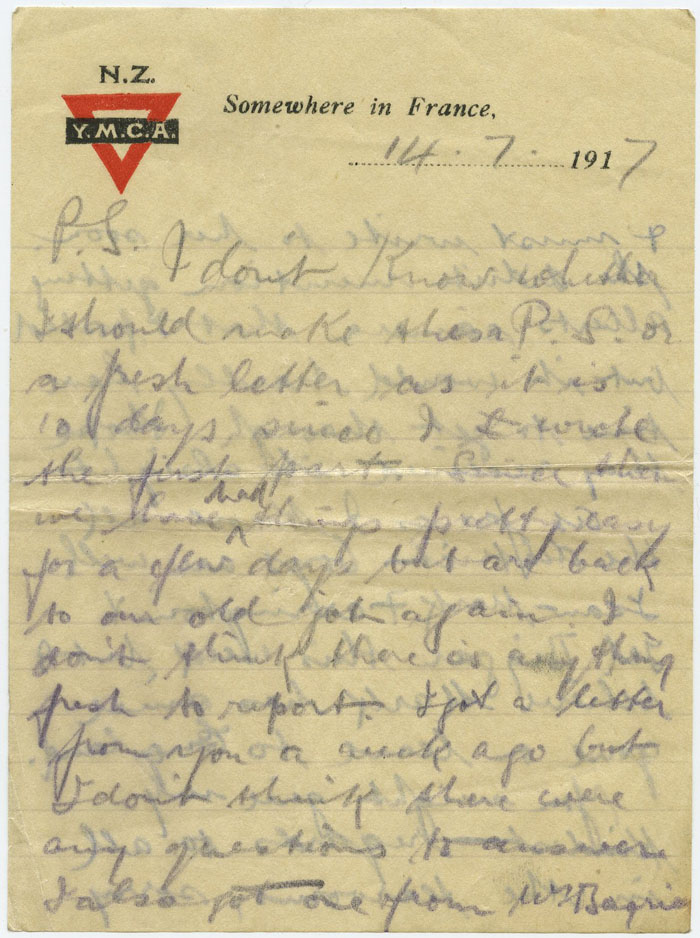 N.Z.
Y.M.C.A.
Somewhere in France,
14.7. 1917
P.S. I dont know whether
I should make this a P.S. or
a fresh letter as it is
10 days since I wrote
the first part. Since then
we have had things pretty easy
for a few days but are back
to our old job again. I
don't think there is anything
fresh to report. I got a letter
from you a week ago but
I don't think there were
any questions to answer
I also got one from